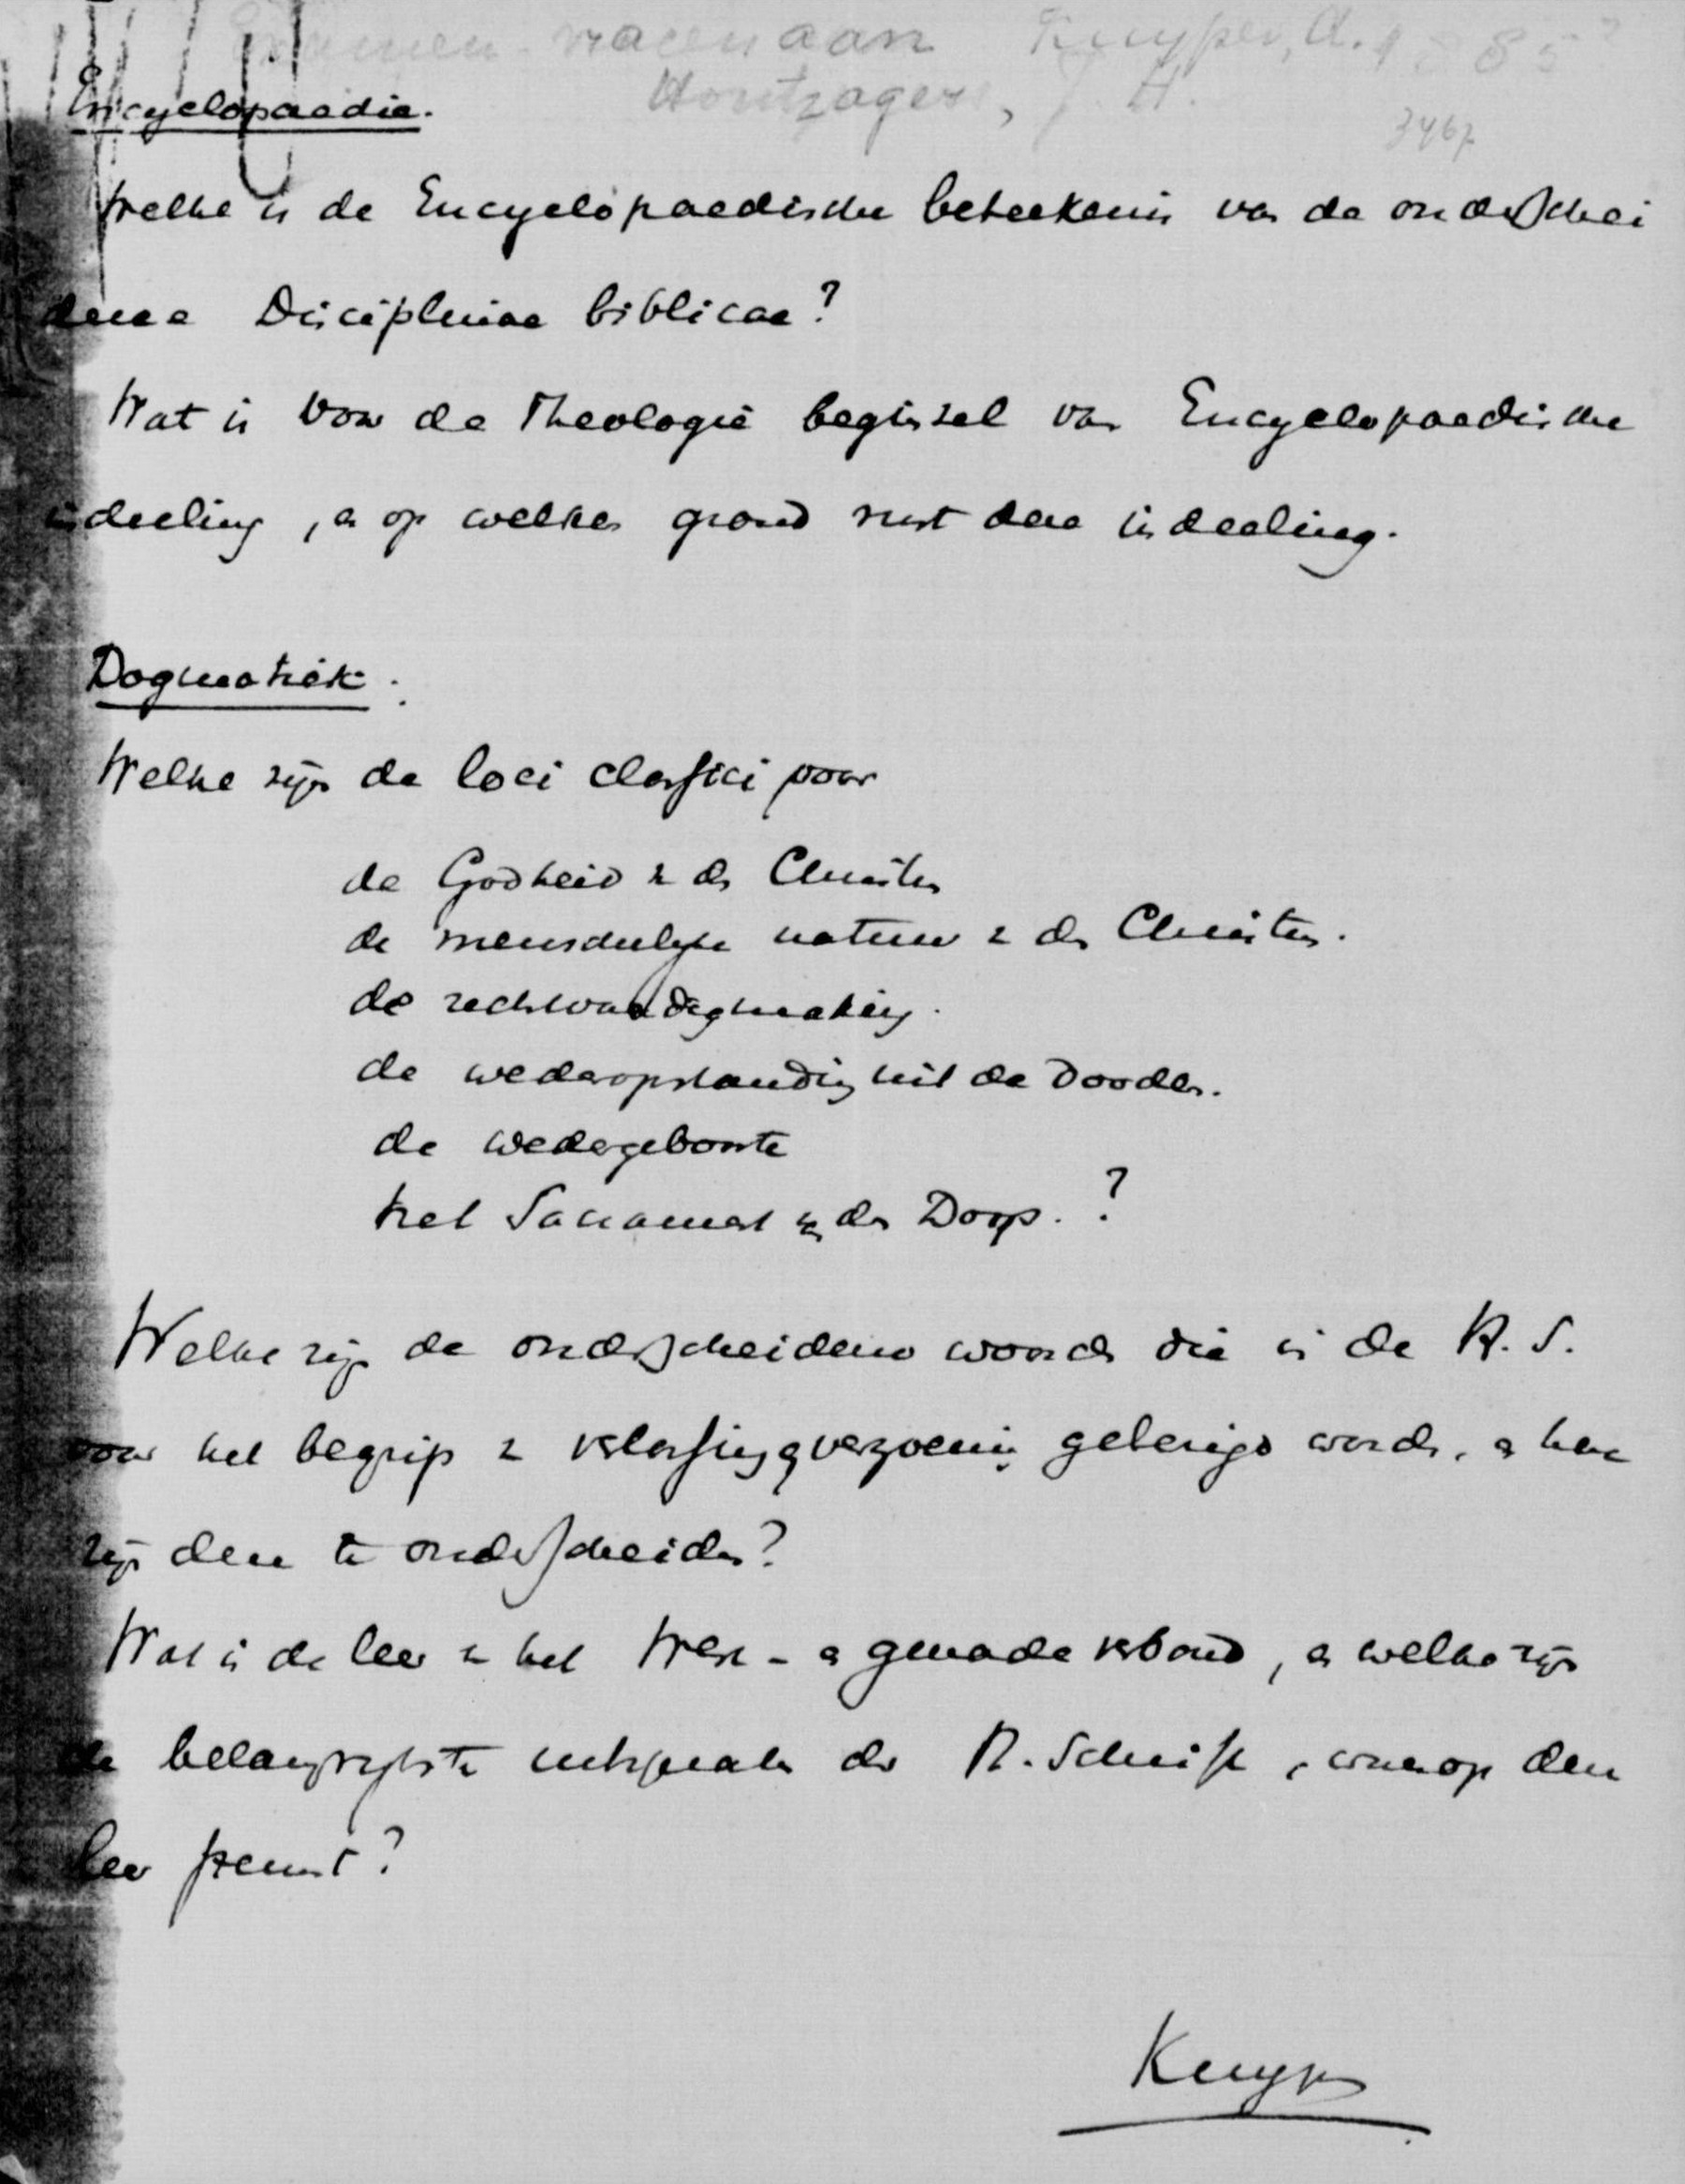 Examen-vragen aan Kuyper, A. 1885?
Houtzagers, J. H.
3467
Encyclopaedie.
Welke is de Encyclopaedische beteekenis van de onderschei
dene Disciplinae biblicae?
Wat is voor de Theologie beginsel van Encyclopaedische
indeeling, en op welken grond rust deze indeeling.
Dogmatiek.
Welke zijn de loci classici voor
de Godheid v. den Christus
de menschelijke natuur v. den Christus.
de rechtvaardigmaking.
de wederopstanding uit de Dooden.
de wedergeboorte
het Sacrament v. den Doop. ?
Welke zijn de onderscheidene woorden die in de H. S.
voor het begrip v. verlossing en verzoening gebezigd worden, en hoe
zijn deze te onderscheiden?
Wat is de leer v. het Werk- en genadeverbond, en welke zijn
de belangrijkste uitspraken der H. Schrift, waarop deze
leer steunt?
Kuyper